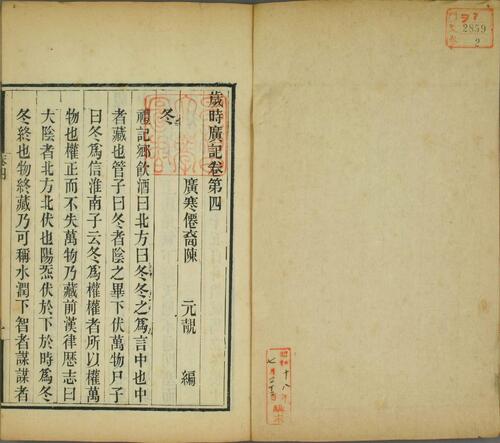 歲時廣記卷第四
廣寒僊裔陳 元靚 編
冬
禮記鄉飲酒曰北方曰冬冬之爲言中也中
者藏也管子曰冬者陰之畢下伏萬物尸子
曰冬爲信淮南子云冬爲權權者所以權萬
物也權正而不失萬物乃藏前漢律歴志曰
大陰者北方北伏也陽炁伏於下於時爲冬
冬終也物終藏乃可稱水潤下智者謀謀者
2859
2
昭和十八年